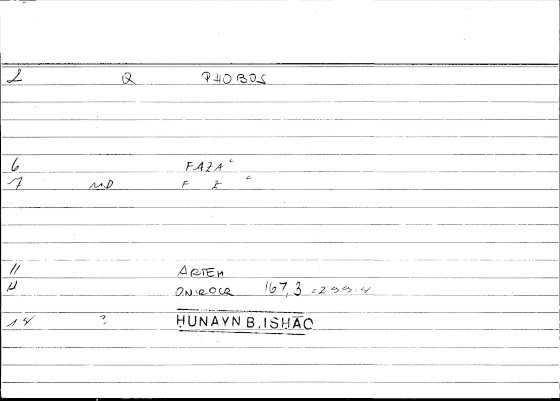 2 Q PHOBOS
6 FAZA ʿ
7 MD F Z ʿ
11 ARTEM
ONIROCR 167,3 = 299.4
14 ? HUNAYN B. ISHĀQ